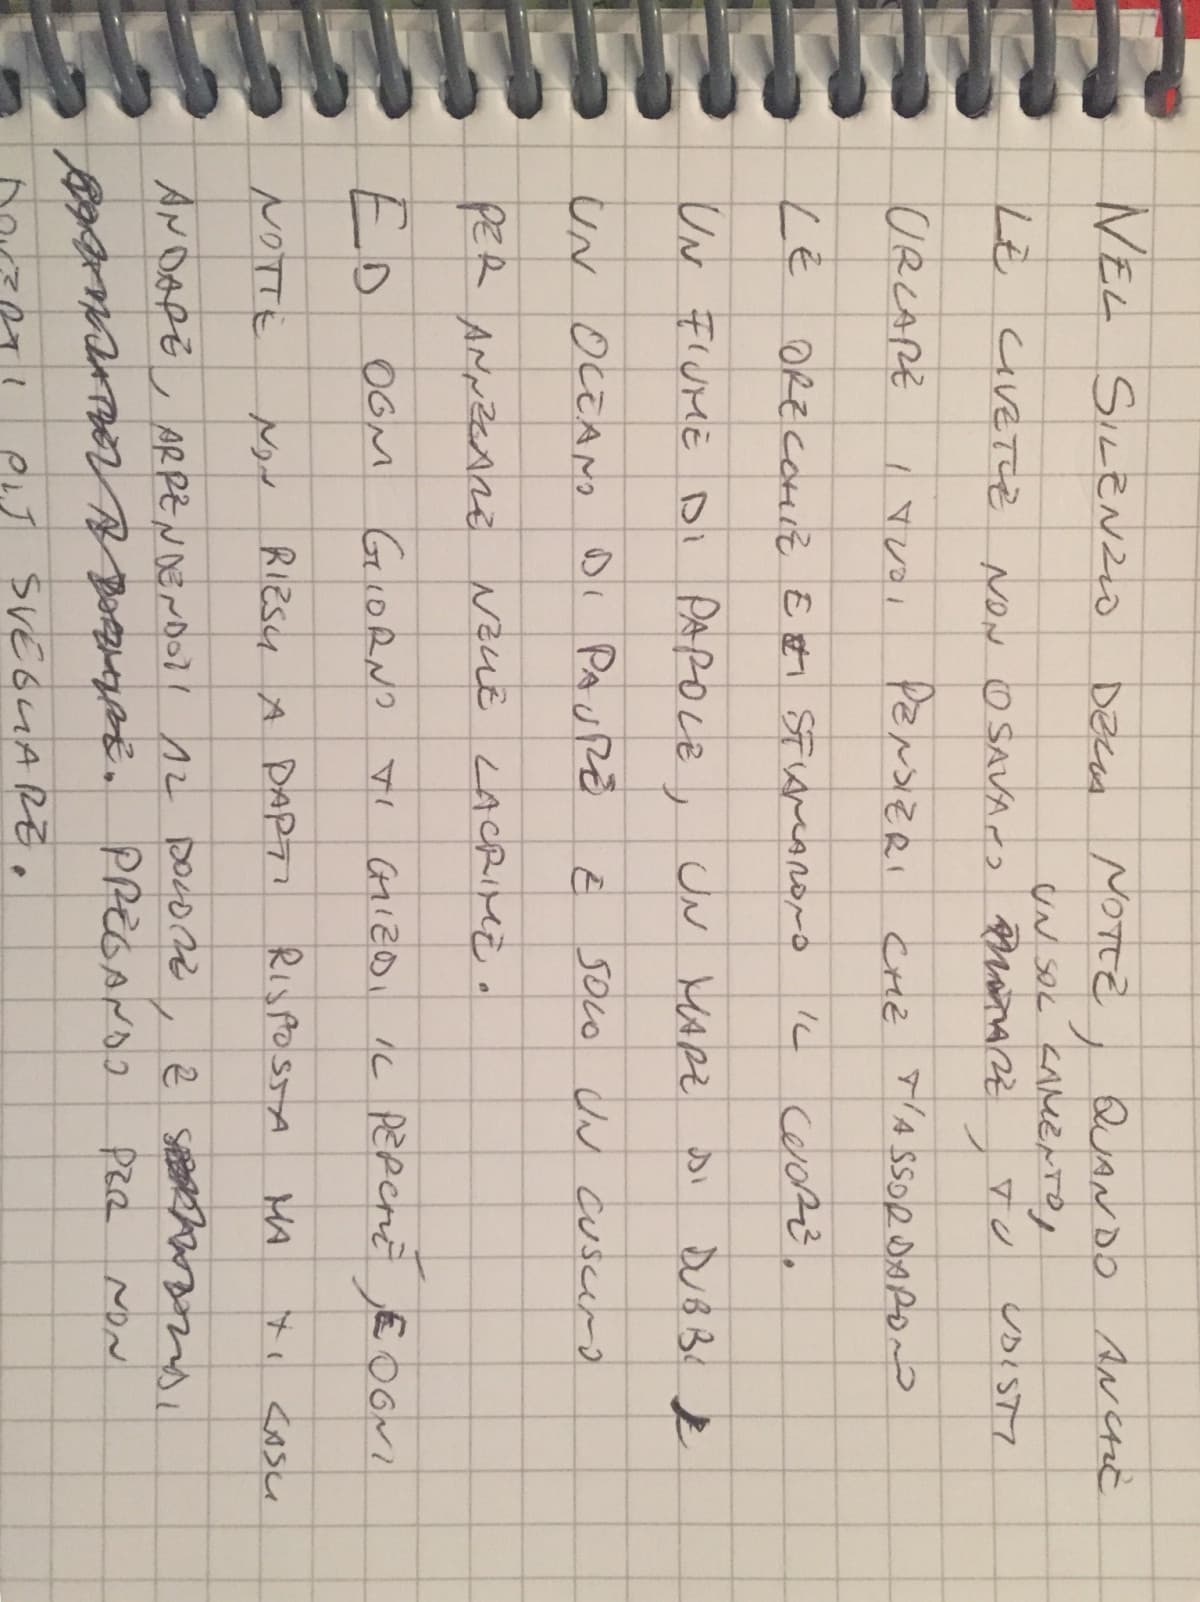 NEL SILENZIO DELLA NOTTE, QUANDO ANCHE
LE CIVETTE NON OSAVANO
UN SOL LAMENTO,
TU UDISTI
URLARE I TUOI PENSIERI CHE T'ASSORDARONO
LE ORECCHIE E TI STRAMARONO IL CUORE.
UN FIUME DI PAROLE, UN MARE DI DUBBI E
UN OCEANO DI PAURE E SOLO UN CUSCINO
PER ANNEGARE NELLE LACRIME.
ED OGNI GIORNO TI CHIEDI IL PERCHÉ, E OGNI
NOTTE NON RIESCI A DARTI RISPOSTA MA TI LASCI
ANDARE, ARRENDENDOTI AL DOLORE, E
PREGANDO PER NON
DOVERTI PIÙ SVEGLIARE.